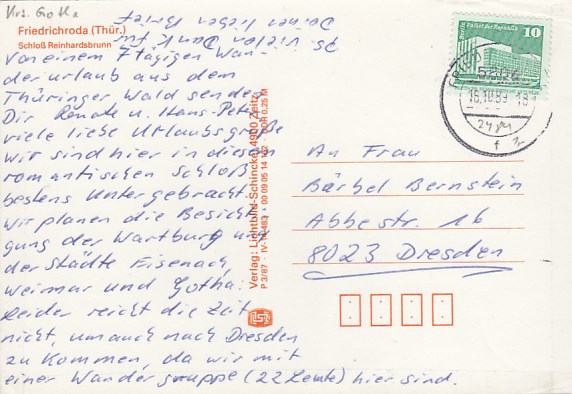 Krs. Gotha
Friedrichroda (Thür.)
Schloß Reinhardsbrunn
PS. vielen Dank für
Deinen lieben Brief
Von einem 7tägigen Wan-
derurlaub aus dem
Thüringer Wald senden
Dir Renate u. Hans-Peter
viele liebe Urlaubsgrüße
wir sind hier in diesem
romantischen Schloß
bestens untergebracht
wir planen die Besichti-
gung der Wartburg und
der Städte Eisenach,
Weimar und Gotha.
Leider reicht die Zeit
nicht, um auch nach Dresden
zu kommen, da wir mit
einer Wandergruppe (22 Leute) hier sind.
Verlag: Lichtbild-Schincke, 4900 Zeitz
P 3/87 · IV-14-483 · 00 09 05 14 0,25 M
Palast der Republik
10
DDR
16.10.89-18
An Frau
Bärbel Bernstein
Abbestr. 16
8023 Dresden